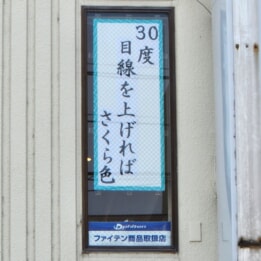 30度
目線を上げれば
さくら色
phiten
ファイテン商品取扱店